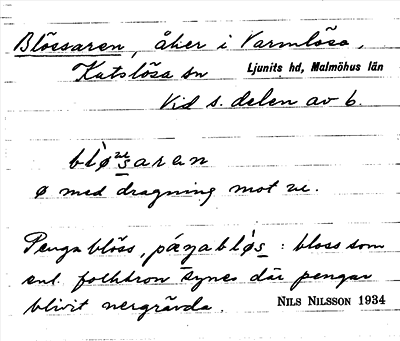 Blössaren, åker i Varmlösa,
Katslösa sn Ljunits hd, Malmöhus län
Vid s. delen av b.
blø̀ᵚsaren
ø med dragning mot ɯ.
Penga blöss, páŋablø̀s : bloss som
enl. folktron synes där pengar
blivit nergrävda. NILS NILSSON 1934